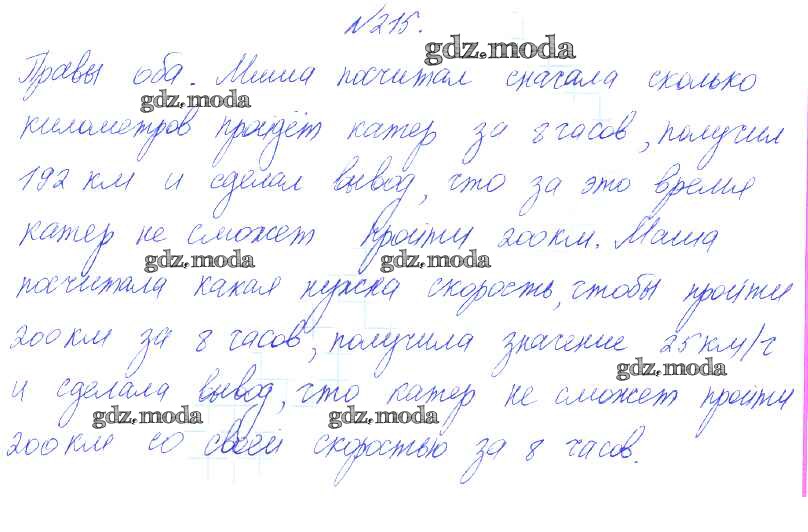 №215.
gdz.moda
Правы оба. Миша посчитал сначала сколько
gdz.moda
километров пройдёт катер за 8 часов, получил
192 км и сделал вывод, что за это время
катер не сможет пройти 200 км. Маша
gdz.moda gdz.moda
посчитала какая нужна скорость, чтобы пройти
200 км за 8 часов, получила значение 25 км/ч
gdz.moda
и сделала вывод, что катер не сможет пройти
gdz.moda gdz.moda
200 км со своей скоростью за 8 часов.